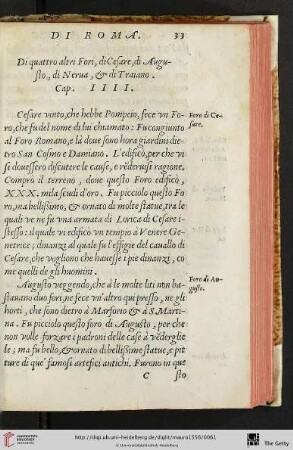 DI ROMA. 33
Di quattro altri Fori, di Cesare, di Augu-
sto, di Nerua, & di Traiano.
Cap. IIII.
Cesare vinto, che hebbe Pompeio, fece vn Fo-
Foro di Ce-
sare.
ro, che fu del nome di lui chiamato: Fu congiunto
al Foro Romano, e là doue sono hora giardini die-
tro San Cosmo e Damiano. L'edificò, per che vi
si douessero discutere le cause, e rẽderuisi ragione.
Comprò il terreno, doue questo Foro edificò,
XXX. mila scudi d'oro. Fu picciolo questo Fo-
ro, ma bellissimo, & ornato di molte statue, tra le
quali ve ne fu vna armata di Lorica di Cesare i-
stesso: il quale vi edificò vn tempio à Venere Ge-
netrice; dinanzi al quale fu l'effigie del cauallo di
Cesare, che vogliono che hauesse i pie dinanzi, co
me quelli de gli huomini.
Augusto veggendo, che à le molte liti nõn ba-
Foro di Au-
gusto.
stauano duo fori, ne fece vn' altro qui presso, ne gli
horti, che sono dietro à Marforio & à S. Marti-
na. Fu picciolo questo foro di Augusto, per che
non volle forzare i padroni delle case à vẽderglie
le; ma fu bello, & ornato di bellissime statue, e pit
ture di que' famosi artefici antichi. Furono in que
C sto
http://digi.ub.uni-heidelberg.de/diglit/mauro1556/0061
© Universitätsbibliothek Heidelberg
UNIVERSITÄTS-
BIBLIOTHEK
HEIDELBERG
The Getty